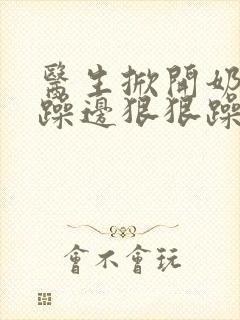 醫生掀開奶
躁邊狠狠躁
會不會玩